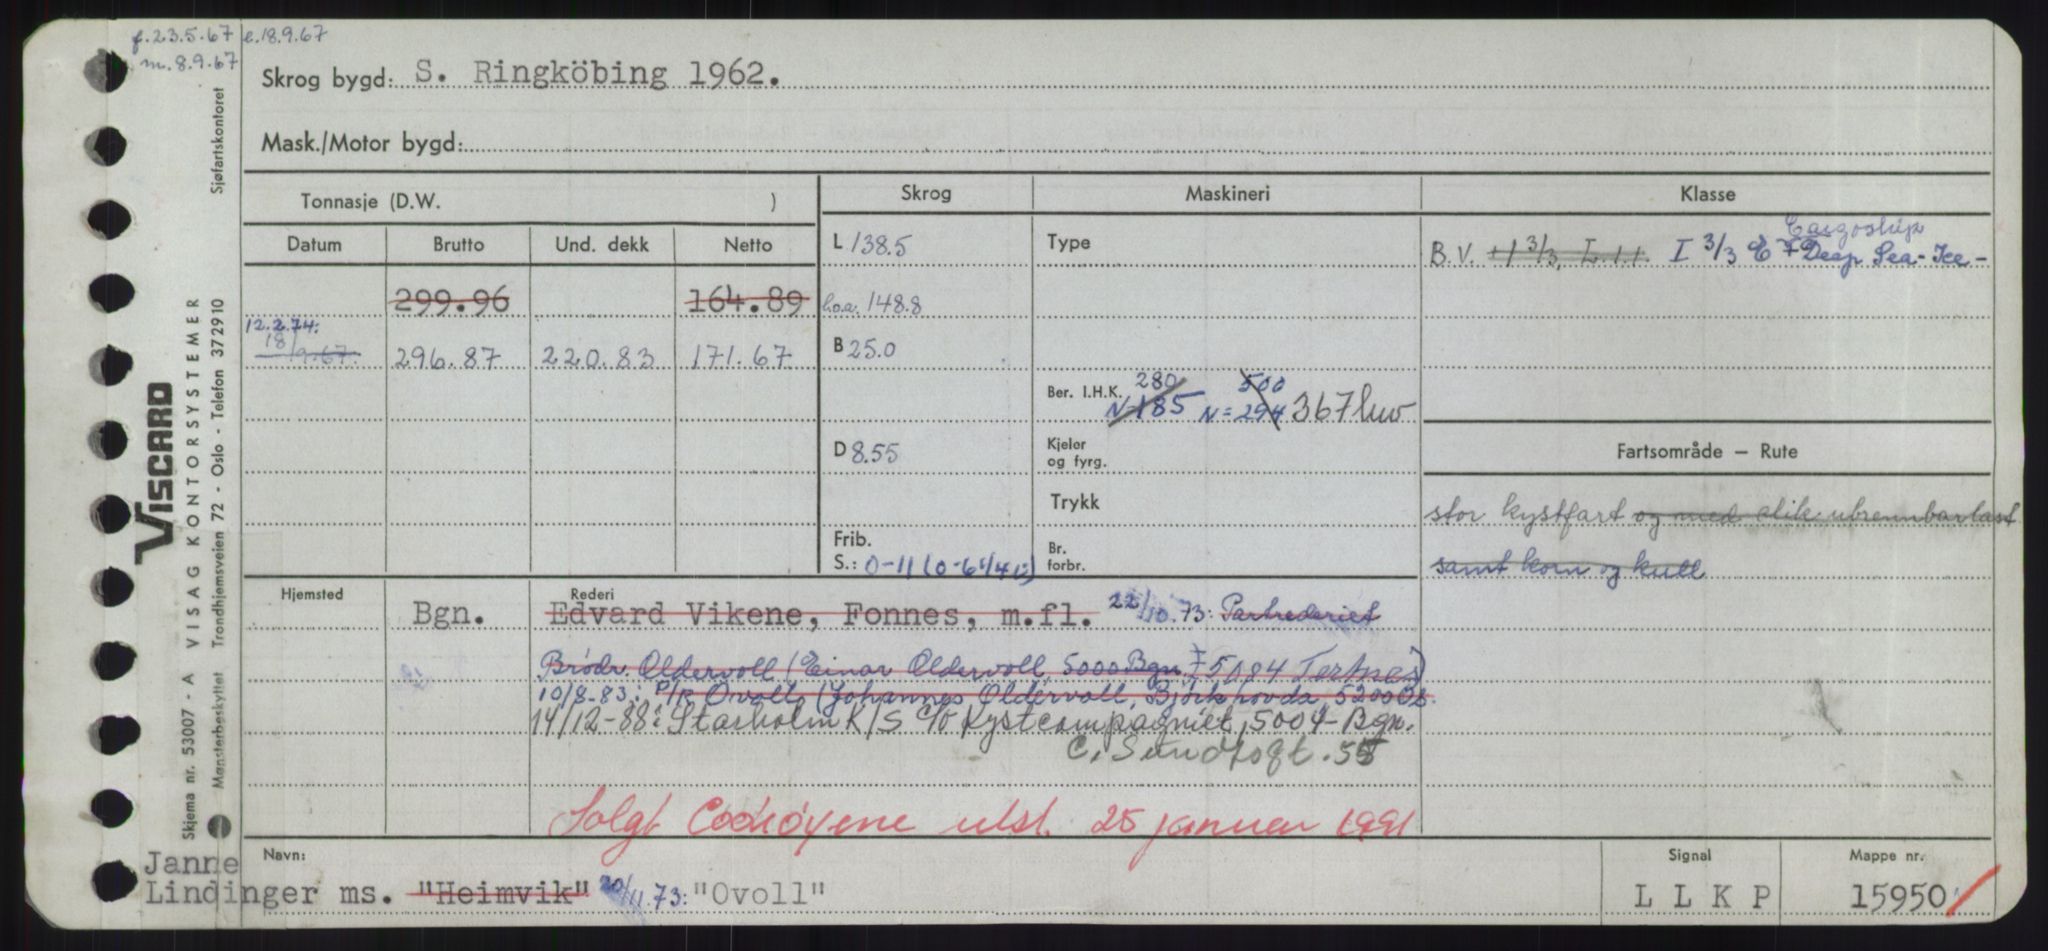 f.23.5.67 e.18.9.67
m. 8.9.67
Skrog bygd: S. Ringköbing 1962.
Mask./Motor bygd:
Tonnasje (D.W. )
Skrog
Maskineri
Klasse
Datum
Brutto
Und. dekk
Netto
L 138.5
Type
Cargoship
B.V. I 3/3 E Deep Sea - Ice -
299.96
164.89
l.o.a. 148.8
12.2.74:
18/9.67. 296.87 220.83 171.67
B 25.0
280 500
Ber. I.H.K. N=185 N=294 367 kw
D 8.55
Kjeler
og fyrg.
Fartsområde – Rute
Trykk
stor kystfart og med slik ubrennbar last
samt korn og kull
Frib.
S.: 0-11 (0-6 1/4 E)
Br.
forbr.
Hjemsted
Rederi
Bgn. Edvard Vikene, Fonnes, m.fl. 22/10.73: Partrederiet
Brødr. Oldervoll (Einar Oldervoll, 5000 Bgn. 5084 Tertnes)
10/8-83: P/R Ovoll (Johannes Oldervoll, Björkhovda, 5200 Os.
14/12-88: Starholm K/S c/o Kystcompagniet, 5004 - Bgn.
C. Sundtsgt. 55
Solgt Cookøyene utsl. 25 januar 1991
Navn:
Signal
Mappe nr.
Janne
Lindinger ms. "Heimvik" 20/11.73: "Ovoll"
L L K P
15950
VISCARD
VISAG KONTORSYSTEMER
Sjøfartskontoret
Skjema nr. 53007 - A
Mønsterbeskyttet Trondhjemsveien 72 - Oslo - Telefon 372910